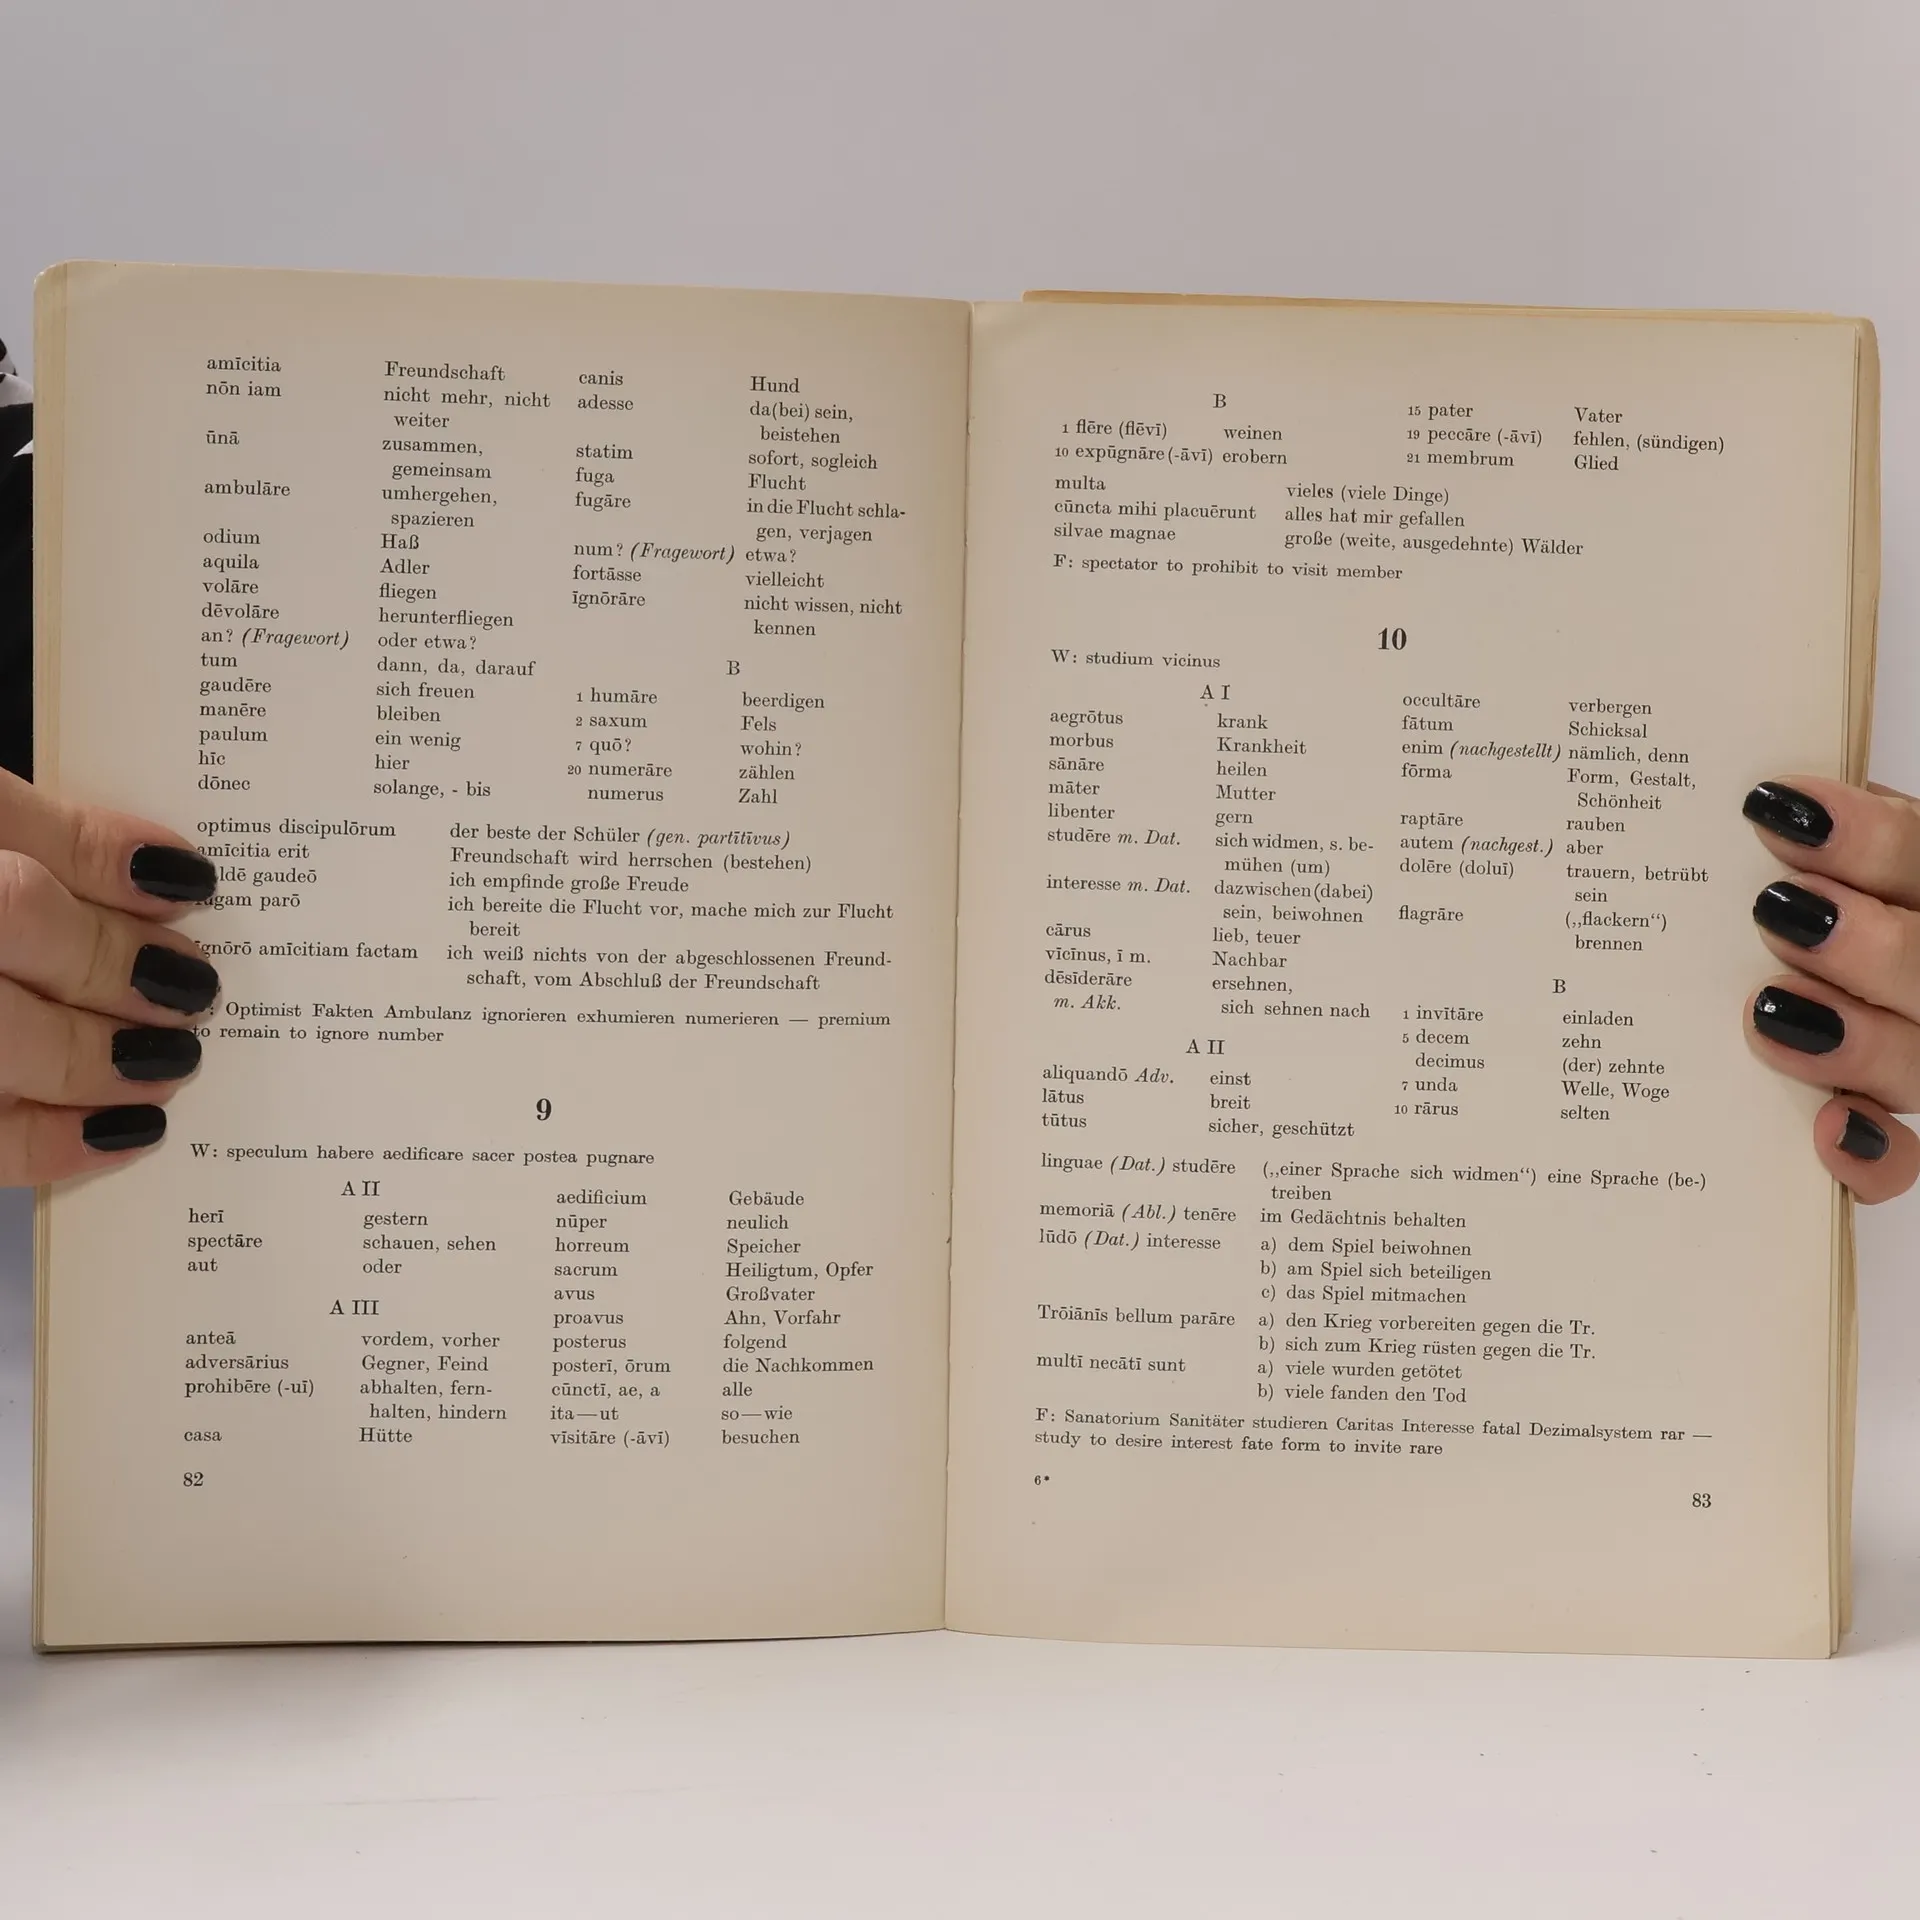 amīcitia Freundschaft
nōn iam nicht mehr, nicht
weiter
ūnā zusammen,
gemeinsam
ambulāre umhergehen,
spazieren
odium Haß
aquila Adler
volāre fliegen
dēvolāre herunterfliegen
an? (Fragewort) oder etwa?
tum dann, da, darauf
gaudēre sich freuen
manēre bleiben
paulum ein wenig
hīc hier
dōnec solange, - bis
canis Hund
adesse da(bei) sein,
beistehen
statim sofort, sogleich
fuga Flucht
fugāre in die Flucht schla-
gen, verjagen
num? (Fragewort) etwa?
fortāsse vielleicht
īgnōrāre nicht wissen, nicht
kennen
B
1 humāre beerdigen
2 saxum Fels
7 quō? wohin?
20 numerāre zählen
numerus Zahl
optimus discipulōrum der beste der Schüler (gen. partītīvus)
amīcitia erit Freundschaft wird herrschen (bestehen)
gaudeō ich empfinde große Freude
parō ich bereite die Flucht vor, mache mich zur Flucht
bereit
īgnōrō amīcitiam factam ich weiß nichts von der abgeschlossenen Freund-
schaft, vom Abschluß der Freundschaft
: Optimist Fakten Ambulanz ignorieren exhumieren numerieren — premium
to remain to ignore number
9
W: speculum habere aedificare sacer postea pugnare
A II
herī gestern
spectāre schauen, sehen
aut oder
A III
anteā vordem, vorher
adversārius Gegner, Feind
prohibēre (-uī) abhalten, fern-
halten, hindern
casa Hütte
aedificium Gebäude
nūper neulich
horreum Speicher
sacrum Heiligtum, Opfer
avus Großvater
proavus Ahn, Vorfahr
posterus folgend
posterī, ōrum die Nachkommen
cūnctī, ae, a alle
ita—ut so—wie
vīsitāre (-āvī) besuchen
82
B
1 flēre (flēvī) weinen
10 expūgnāre (-āvī) erobern
15 pater Vater
19 peccāre (-āvī) fehlen, (sündigen)
21 membrum Glied
multa vieles (viele Dinge)
cūncta mihi placuērunt alles hat mir gefallen
silvae magnae große (weite, ausgedehnte) Wälder
F: spectator to prohibit to visit member
10
W: studium vicinus
A I
aegrōtus krank
morbus Krankheit
sānāre heilen
māter Mutter
libenter gern
studēre m. Dat. sich widmen, s. be-
mühen (um)
interesse m. Dat. dazwischen (dabei)
sein, beiwohnen
cārus lieb, teuer
vīcīnus, ī m. Nachbar
dēsīderāre ersehnen,
m. Akk. sich sehnen nach
A II
aliquandō Adv. einst
lātus breit
tūtus sicher, geschützt
occultāre verbergen
fātum Schicksal
enim (nachgestellt) nämlich, denn
fōrma Form, Gestalt,
Schönheit
raptāre rauben
autem (nachgest.) aber
dolēre (doluī) trauern, betrübt
sein
flagrāre („flackern“)
brennen
B
1 invītāre einladen
5 decem zehn
decimus (der) zehnte
7 unda Welle, Woge
10 rārus selten
linguae (Dat.) studēre („einer Sprache sich widmen“) eine Sprache (be-)
treiben
memoriā (Abl.) tenēre im Gedächtnis behalten
lūdō (Dat.) interesse a) dem Spiel beiwohnen
b) am Spiel sich beteiligen
c) das Spiel mitmachen
Trōiānīs bellum parāre a) den Krieg vorbereiten gegen die Tr.
b) sich zum Krieg rüsten gegen die Tr.
multī necātī sunt a) viele wurden getötet
b) viele fanden den Tod
F: Sanatorium Sanitäter studieren Caritas Interesse fatal Dezimalsystem rar —
study to desire interest fate form to invite rare
6*
83